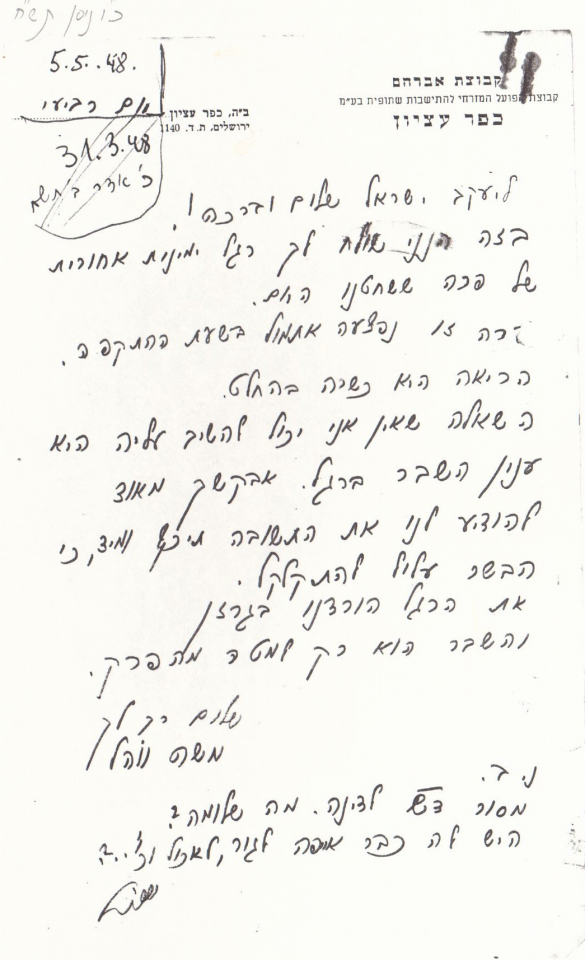 כ"ו ניסן תש"ח
5.5.48.
יום רביעי
31.3.48
כ' אדר ב' תש"ח
קבוצת אברהם
קבוצת הפועל המזרחי להתישבות שתופית בע"מ
כפר עציון
ב"ה, כפר עציון
ירושלים, ת.ד. 1140
ליעקב ישראל שלום וברכה!
בזה הנני שולח לך רגל ימינית אחורית
של פרה ששחטנו היום.
פרה זו נפצעה אתמול בשעת ההתקפה.
הריאה היא כשרה בהחלט.
השאלה שאין אני יכול להשיב עליה היא
ענין השבר ברגל. אבקשך מאוד
להודיע לנו את התשובה תיכף ומיד, כי
הבשר עלול להתקלקל.
את הרגל הורדנו בגרזן
והשבר הוא רק למטה מהפרק.
שלום רב לך
משה
נ.ב.
מסור דש לדינה. מה שלומה?
היש לה כבר איפה לגור, לאכול וכו'..?